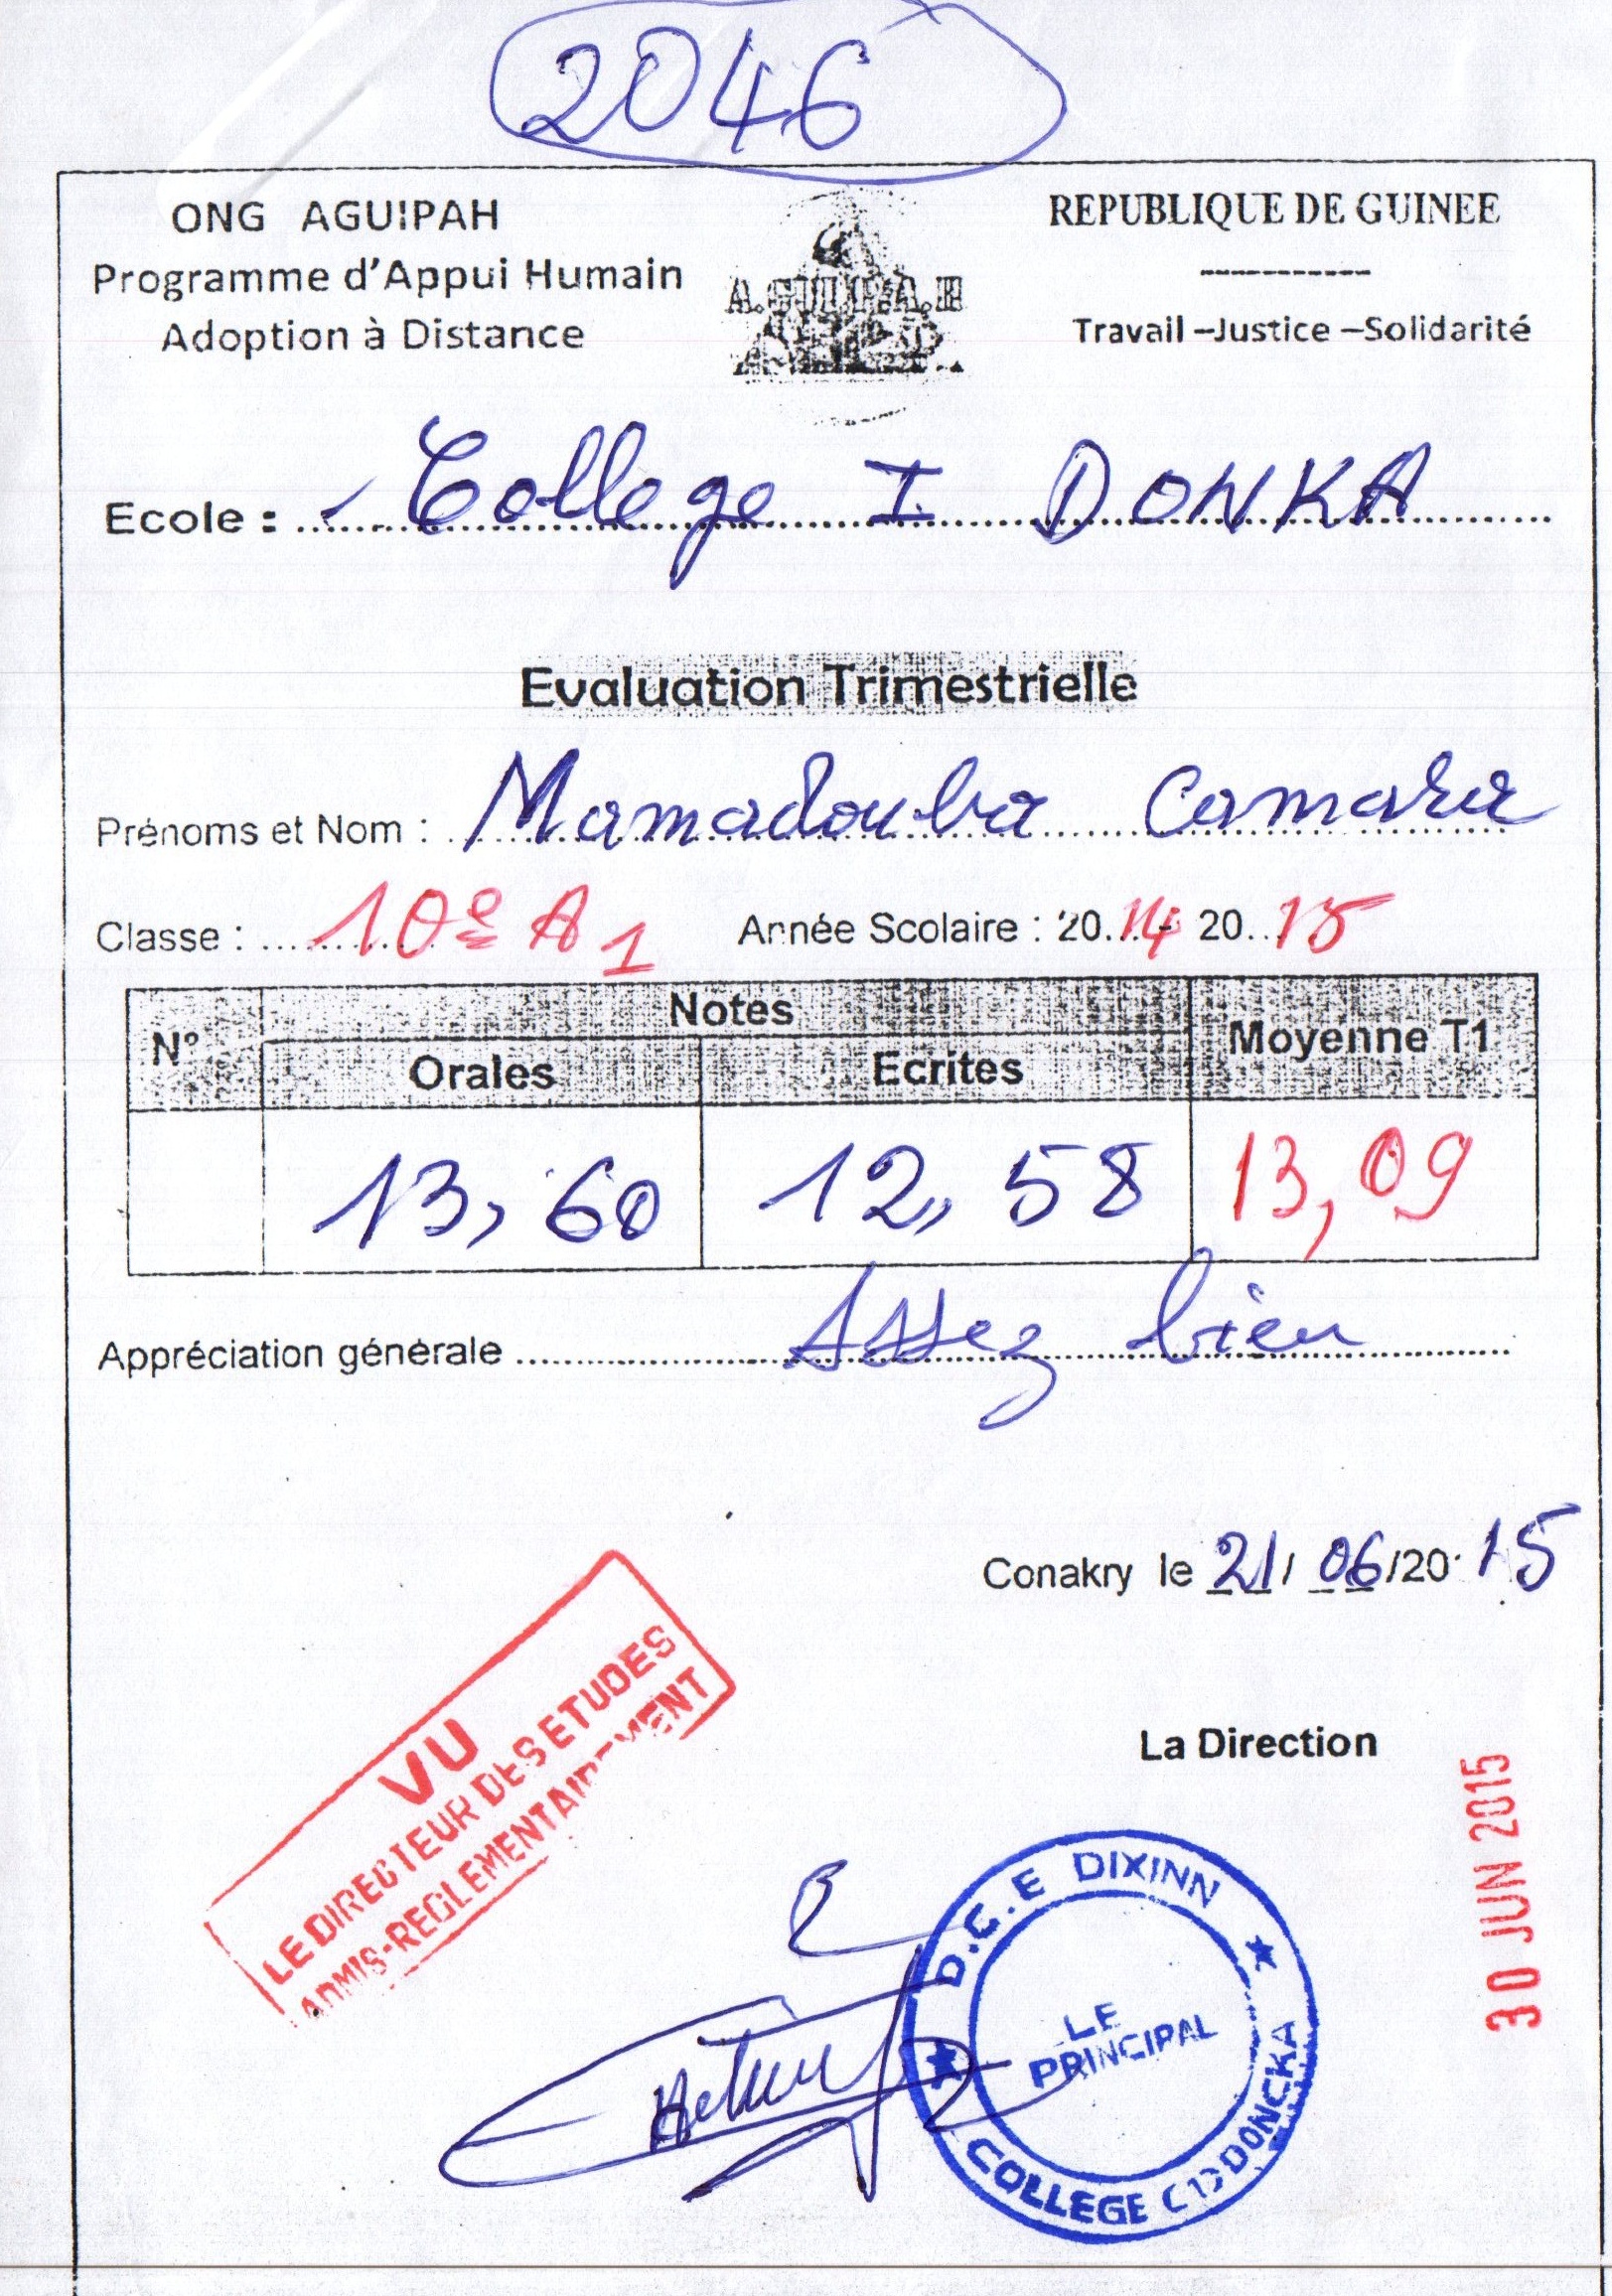 2046
ONG AGUIPAH
Programme d'Appui Humain
Adoption à Distance
A.GUI.P.A.H
REPUBLIQUE DE GUINEE
----------
Travail –Justice –Solidarité
Ecole : College I DONKA
Evaluation Trimestrielle
Prénoms et Nom : Mamadouba Camara
Classe : 10e A1 Année Scolaire : 2014 - 2015
N° Notes Moyenne T1
Orales Ecrites
13,60 12,58 13,09
Appréciation générale Assez bien
Conakry le 21/ 06/20 15
VU
LE DIRECTEUR DES ETUDES
ADMIS-REGLEMENTAIREMENT
La Direction
30 JUN 2015
D.C.E DIXINN
LE
PRINCIPAL
COLLEGE (1) DONCKA